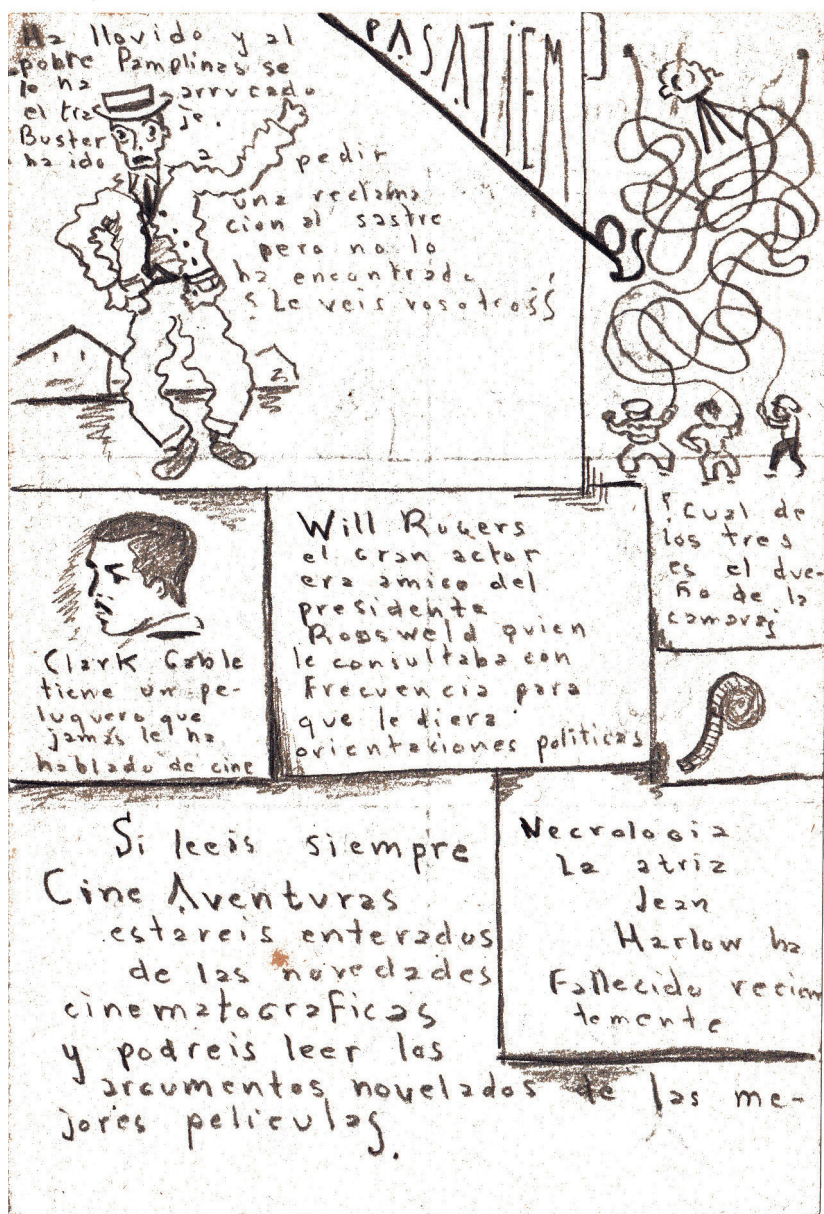 Ha llovido y al
pobre Pamplinas se
le ha arrugado
el traje.
Buster
ha ido a pedir
una reclama
cion al sastre
pero no lo
ha encontrado
¿Le veis vosotros?
PASATIEMPOS
¿Cual de
los tres
es el due-
ño de la
camara?
Clark Gable
tiene un pe-
luquero que
jamás le ha
hablado de cine
Will Rogers
el gran actor
era amigo del
presidente
Roosweld quien
le consultaba con
frecuencia para
que le diera
orientaciones politicas
Si leeis siempre
Cine Aventuras
estareis enterados
de las novedades
cinematograficas
y podreis leer los
argumentos novelados de las me-
jores peliculas.
Necrologia
La atriz
Jean
Harlow ha
Fallecido recien
temente